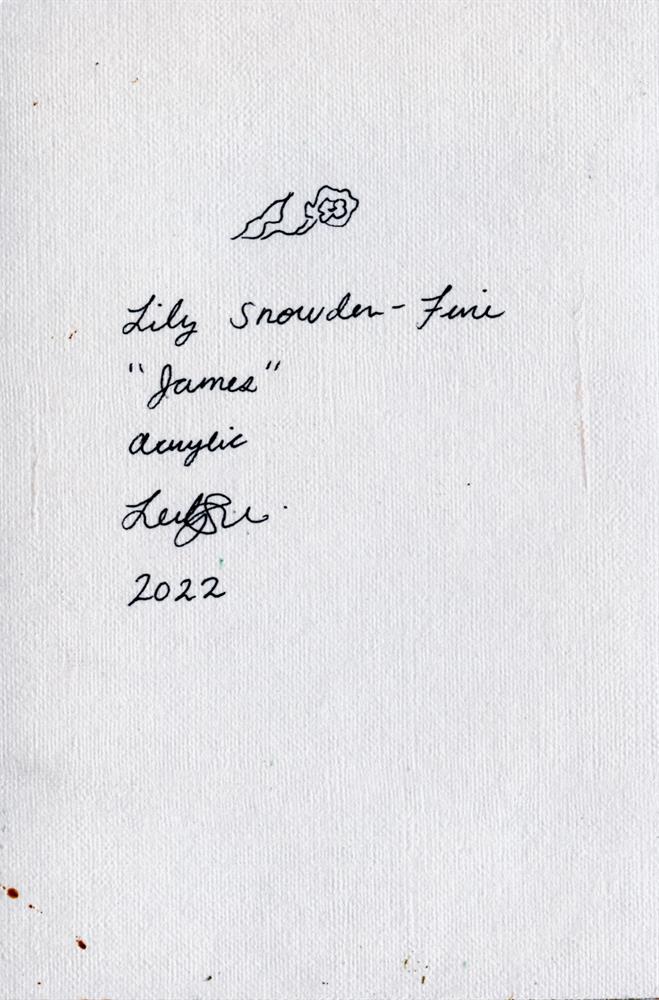 Lily Snowden-Fine
"James"
acrylic
2022